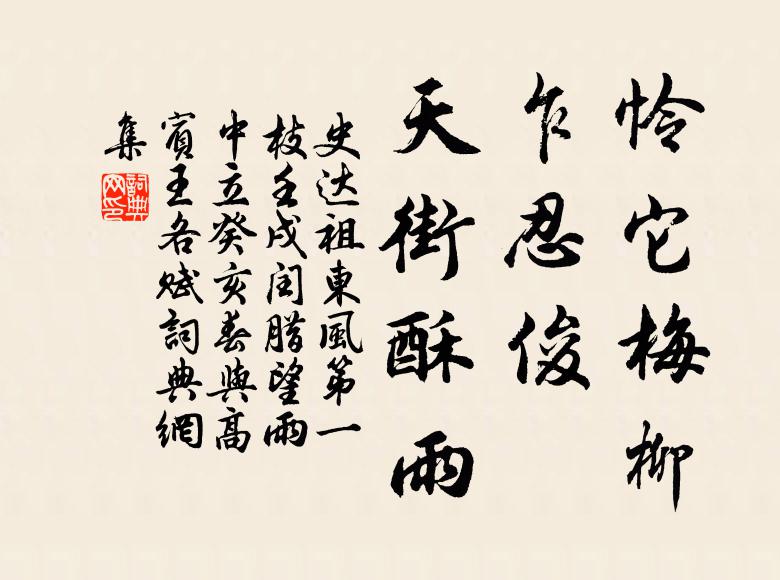 怜它梅柳
乍忍俊
天街酥雨
史达祖東風第一
枝壬戌闰腊望雨
中立癸亥春與高
賓王各赋詞典網
集
詞典網印